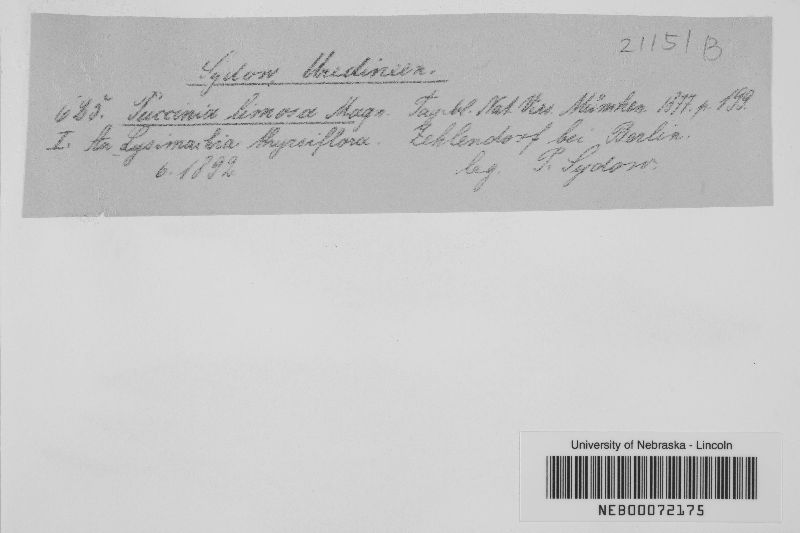 21151 B
Sydow, Uredineen.
625. Puccinia limosa Magn. Tagebl. Nat. Vers. München 1877. p. 199
I. An Lysimachia thyrsiflora. Zehlendorf bei Berlin.
6. 1892 leg. P. Sydow.
University of Nebraska - Lincoln
NEB00072175